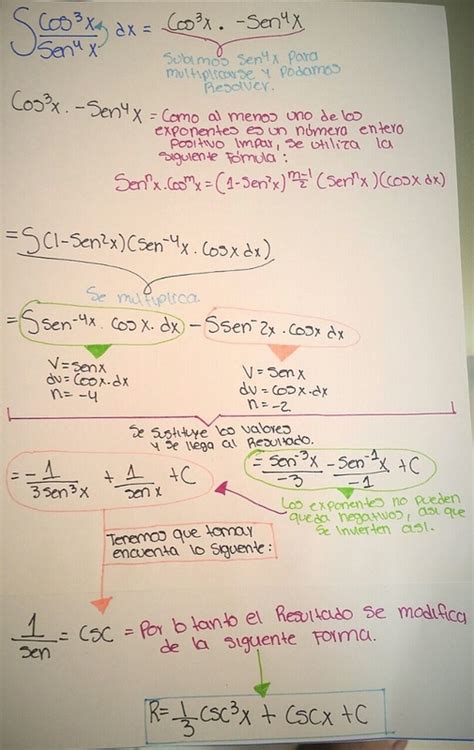 ∫ Cos³x / Sen⁴x dx = Cos³x . -Sen⁴x
Subimos Sen⁴x Para
multiplicarse y Podamos
Resolver.
Cos³x . -Sen⁴x = Como al menos uno de los
exponentes es un número entero
Positivo Impar, se utiliza la
siguiente Fórmula:
Senⁿx . Cosᵐx = (1-Sen²x)^(m-1/2) (Senⁿx)(Cosx dx)
= ∫(1-Sen²x)(Sen⁻⁴x . Cosx dx)
Se multiplica
= ∫Sen⁻⁴x . Cosx . dx - ∫Sen⁻²x . Cosx dx
V = Senx V = Senx
dv = Cosx . dx dv = Cosx . dx
n = -4 n = -2
Se Sustituye los valores
y se llega al Resultado.
= -1/3sen³x + 1/senx + C = Sen⁻³x/-3 - Sen⁻¹x/-1 + C
Los exponentes no pueden
queda negativos, así que
se invierten así.
Tenemos que tomar
encuenta lo Siguente:
1/sen = CSC = Por lo tanto el Resultado se modifica
de la siguiente Forma.
R = 1/3 CSC³x + CSCx + C